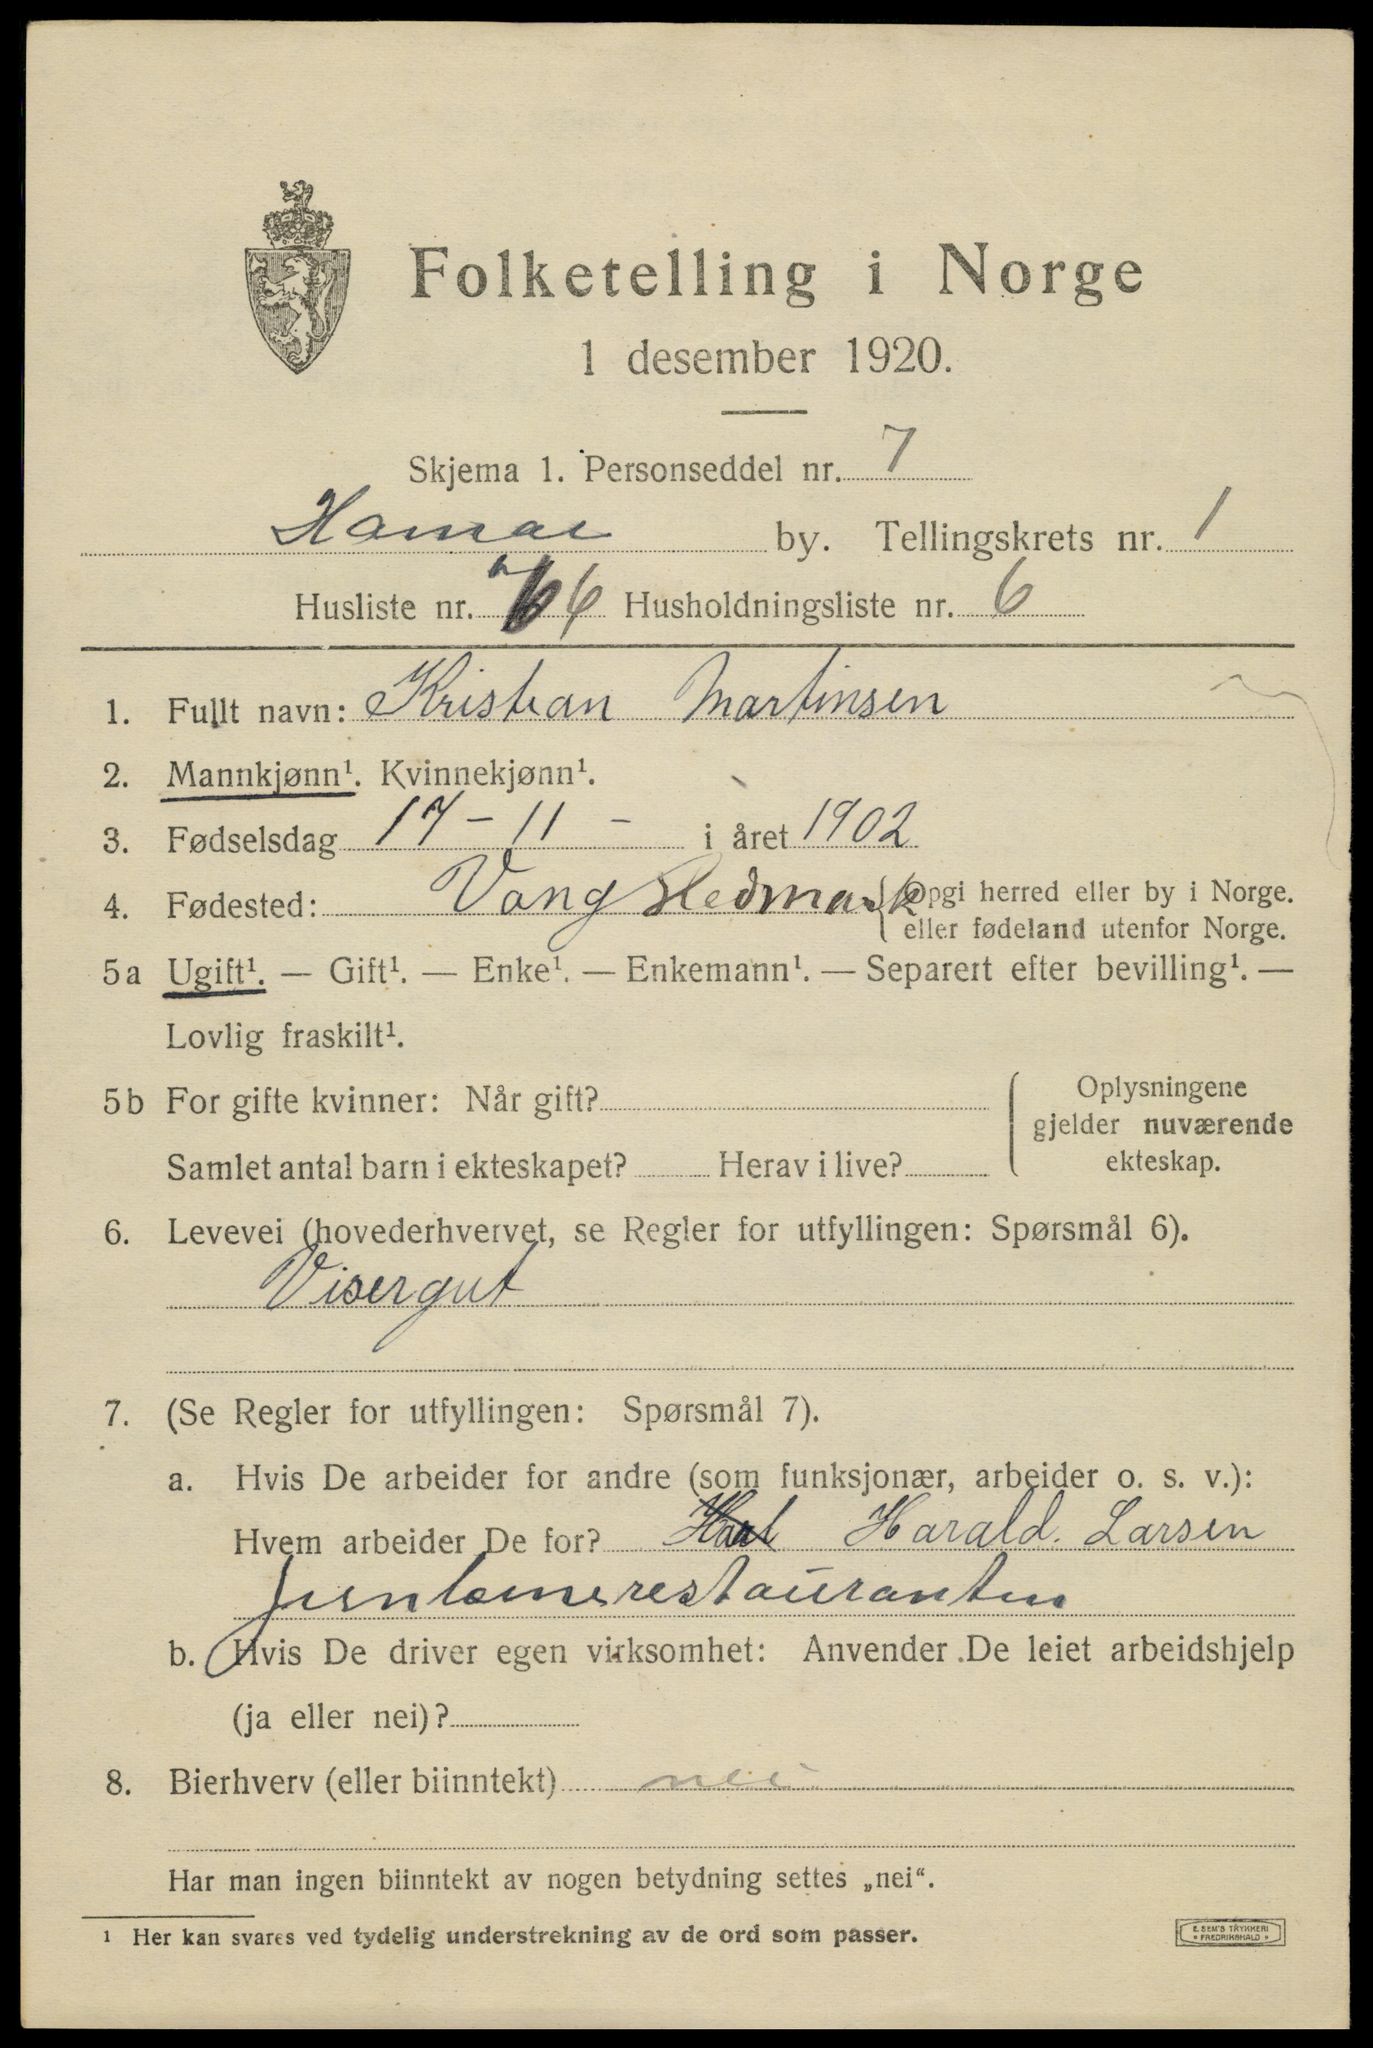 Folketelling i Norge
1 desember 1920.
Skjema 1. Personseddel nr. 7
Hamar by. Tellingskrets nr. 1
Husliste nr. 6 Husholdningsliste nr. 6
1. Fullt navn: Kristian Martinsen
2. Mannkjønn¹. Kvinnekjønn¹.
3. Fødselsdag 17 - 11 - i året 1902
4. Fødested: Vang Hedmark {Opgi herred eller by i Norge.
eller fødeland utenfor Norge.
5a Ugift¹. — Gift¹. — Enke¹. — Enkemann¹. — Separert efter bevilling¹. —
Lovlig fraskilt¹.
5b For gifte kvinner: Når gift?
Samlet antal barn i ekteskapet? Herav i live?
{Oplysningene
gjelder nuværende
ekteskap.
6. Levevei (hovederhvervet, se Regler for utfyllingen: Spørsmål 6).
Visergut
7. (Se Regler for utfyllingen: Spørsmål 7).
a. Hvis De arbeider for andre (som funksjonær, arbeider o. s. v.):
Hvem arbeider De for? Harald. Larsen
Jernbanerestauranten
b. Hvis De driver egen virksomhet: Anvender De leiet arbeidshjelp
(ja eller nei)?
8. Bierhverv (eller biinntekt) nei
Har man ingen biinntekt av nogen betydning settes „nei“.
¹ Her kan svares ved tydelig understrekning av de ord som passer.
E. SEM'S TRYKKERI
* FREDRIKSHALD *